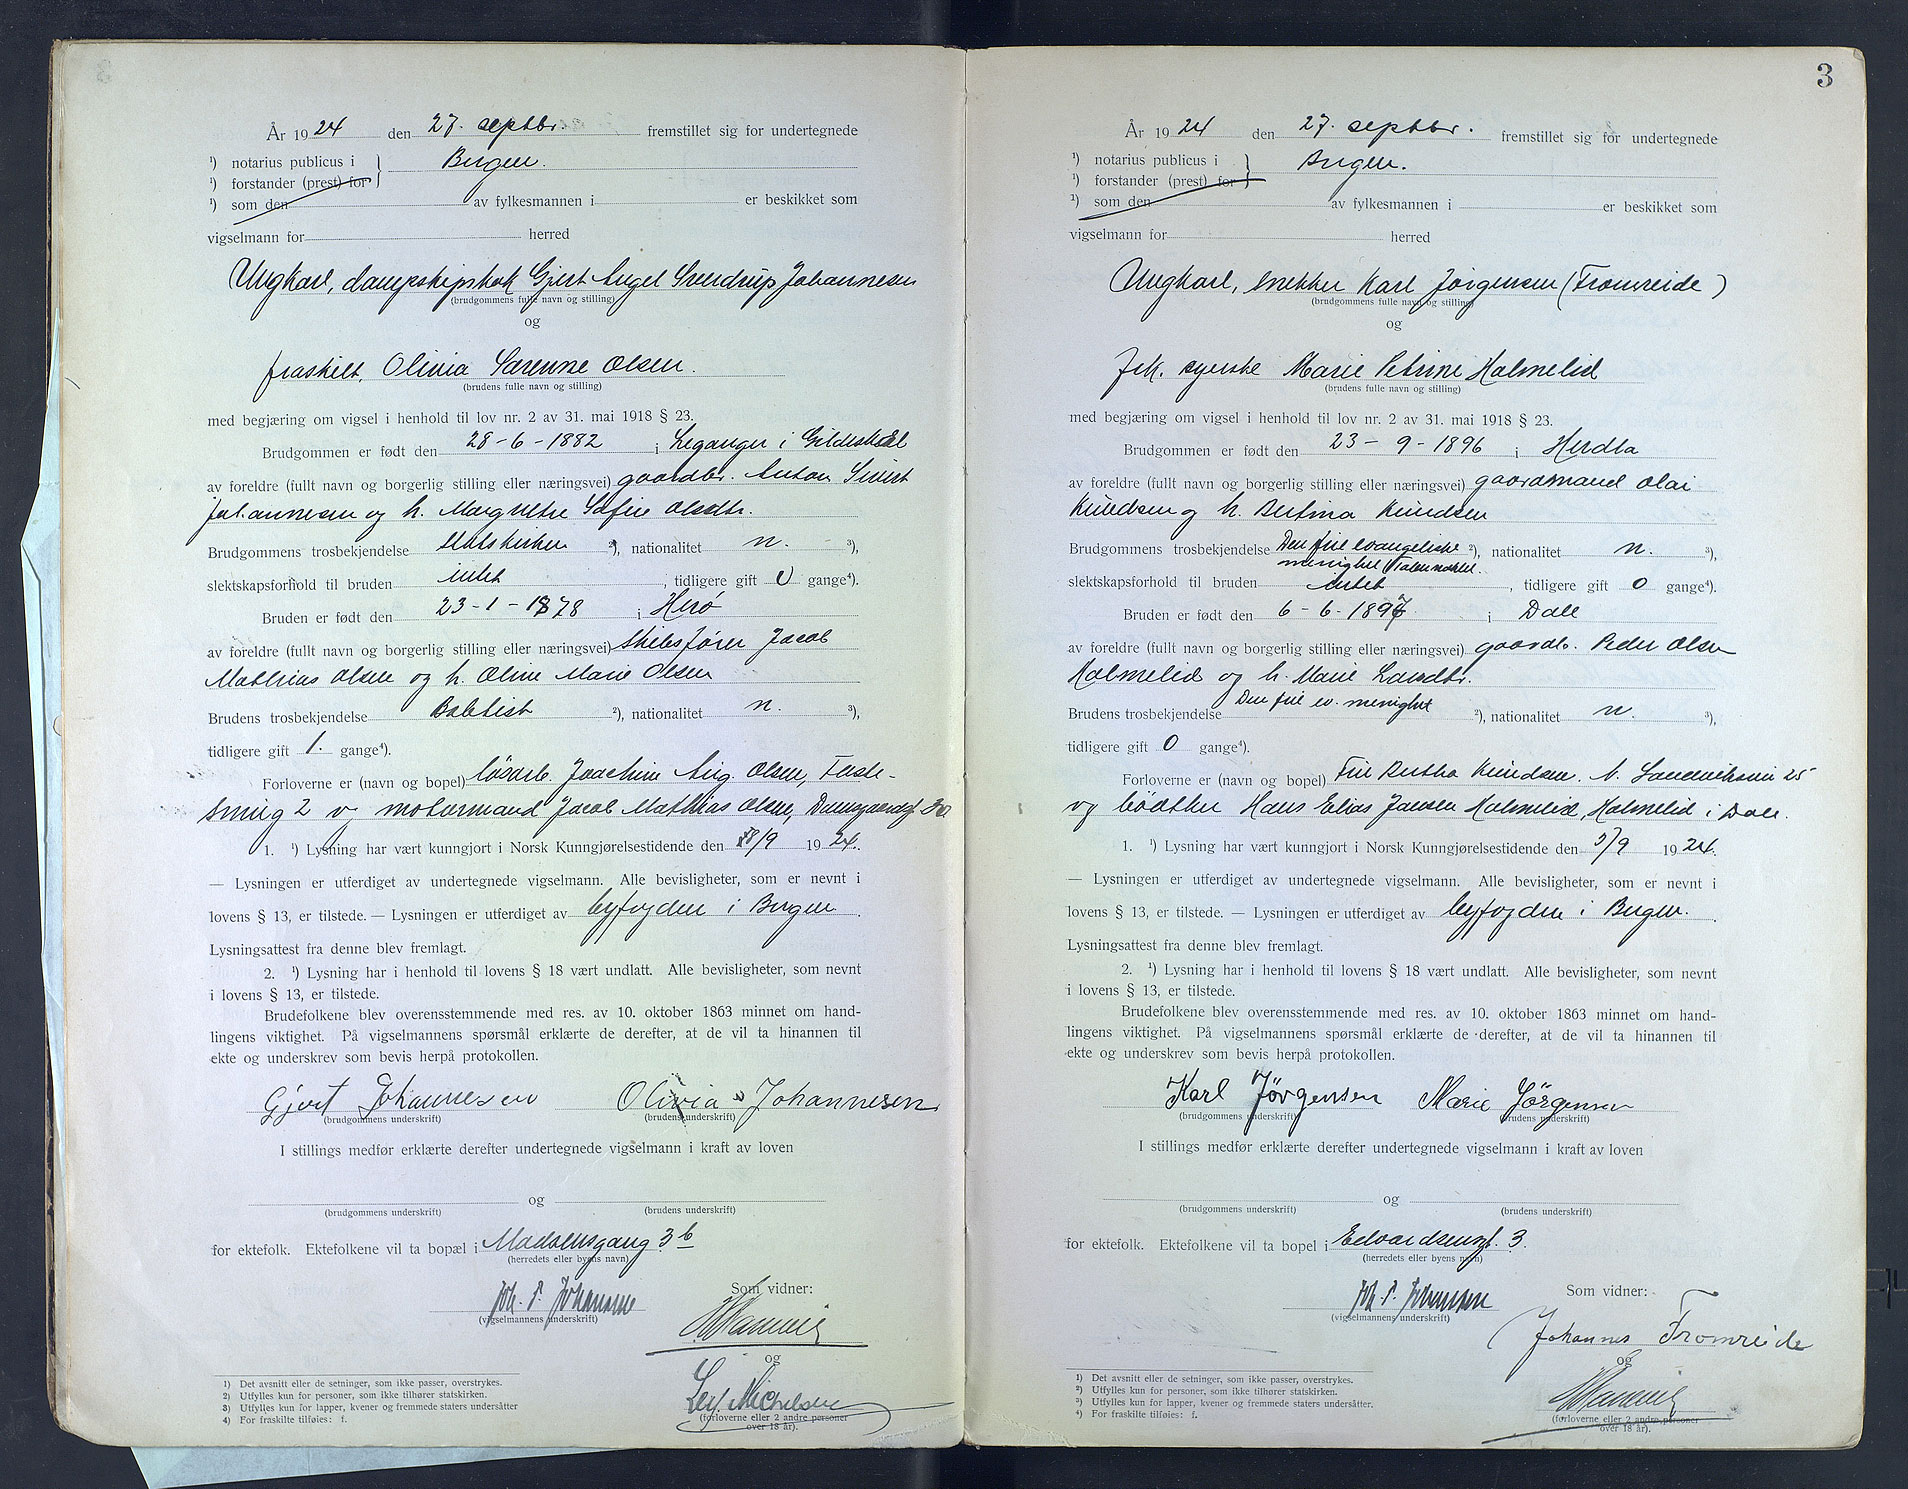 År 1924 den 27. septbr. fremstillet sig for undertegnede
¹) notarius publicus i Bergen.
¹) forstander (prest) for
¹) som den av fylkesmannen i er beskikket som
vigselmann for herred
Ungkarl, dampskipskok Gjert Angel Svendrup Johannesen
(brudgommens fulle navn og stilling)
og
fraskilt, Olivia Sørenne Olsen.
(brudens fulle navn og stilling)
med begjæring om vigsel i henhold til lov nr. 2 av 31. mai 1918 § 23.
Brudgommen er født den 28-6-1882 i Leganger i Gildeskål
av foreldre (fullt navn og borgerlig stilling eller næringsvei) gaardbr. Anton Sivert
Johannesen og h. Margrethe Sofie Olsdtr.
Brudgommens trosbekjendelse statskirken ²), nationalitet n. ³),
slektskapsforhold til bruden intet, tidligere gift 0 gange⁴).
Bruden er født den 23-1-1878 i Herø
av foreldre (fullt navn og borgerlig stilling eller næringsvei) skibsfører Jacob
Mathias Olsen og h. Oline Marie Olsen
Brudens trosbekjendelse Babtist ²), nationalitet n. ³),
tidligere gift 1. gange⁴).
Forloverne er (navn og bopel) løsarb. Joachim Aug. Olsen,
smug 2 og motormand Jacob Mathias Olsen, Damsgaardsgt
1. ¹) Lysning har vært kunngjort i Norsk Kunngjørelsestidende den 18/9 1924.
— Lysningen er utferdiget av undertegnede vigselmann. Alle bevisligheter, som er nevnt i
lovens § 13, er tilstede. — Lysningen er utferdiget av byfogden i Bergen.
Lysningsattest fra denne blev fremlagt.
2. ¹) Lysning har i henhold til lovens § 18 vært undlatt. Alle bevisligheter, som nevnt
i lovens § 13, er tilstede.
Brudefolkene blev overensstemmende med res. av 10. oktober 1863 minnet om hand-
lingens viktighet. På vigselmannens spørsmål erklærte de derefter, at de vil ta hinannen til
ekte og underskrev som bevis herpå protokollen.
Gjert Johannesen Olivia Johannesen
(brudgommens underskrift) (brudens underskrift)
I stillings medfør erklærte derefter undertegnede vigselmann i kraft av loven
og
(brudgommens underskrift) (brudens underskrift)
for ektefolk. Ektefolkene vil ta bopæl i Madsensgang 3b
(herredets eller byens navn)
Som vidner:
Joh. P. Johansen
(vigselmannens underskrift)
og
Leif Michelsen
(forloverne eller 2 andre personer
over 18 år).
1) Det avsnitt eller de setninger, som ikke passer, overstrykes.
2) Utfylles kun for personer, som ikke tilhører statskirken.
3) Utfylles kun for lapper, kvener og fremmede staters undersåtter
4) For fraskilte tilføies: f.
3
År 1924 den 27. septbr. fremstillet sig for undertegnede
¹) notarius publicus i Bergen.
¹) forstander (prest) for
¹) som den av fylkesmannen i er beskikket som
vigselmann for herred
Ungkarl, snekker Karl Jørgensen (Fromreide)
(brudgommens fulle navn og stilling)
og
frk. syerske Marie Petrine Holmelid
(brudens fulle navn og stilling)
med begjæring om vigsel i henhold til lov nr. 2 av 31. mai 1918 § 23.
Brudgommen er født den 23-9-1896 i Herdla
av foreldre (fullt navn og borgerlig stilling eller næringsvei) gaardmand Olai
Knudsen og h. Bertina Knudsen
Brudgommens trosbekjendelse Den frie evangeliske ²), nationalitet n. ³),
menighet Tabernaklet.
slektskapsforhold til bruden intet, tidligere gift 0 gange⁴).
Bruden er født den 6-6-1897 i Dale
av foreldre (fullt navn og borgerlig stilling eller næringsvei) gaardb. Peder Olsen
Holmelid og h. Marie Larsdtr.
Brudens trosbekjendelse Den frie ev. menighet ²), nationalitet n. ³),
tidligere gift 0 gange⁴).
Forloverne er (navn og bopel) Frk Bertha Knudsen. N. Sandviksvei 25
og bødtker Hans Elias Jansen Holmelid, Holmelid i Dale.
1. ¹) Lysning har vært kunngjort i Norsk Kunngjørelsestidende den 5/9 1924.
— Lysningen er utferdiget av undertegnede vigselmann. Alle bevisligheter, som er nevnt i
lovens § 13, er tilstede. — Lysningen er utferdiget av byfogden i Bergen.
Lysningsattest fra denne blev fremlagt.
2. ¹) Lysning har i henhold til lovens § 18 vært undlatt. Alle bevisligheter, som nevnt
i lovens § 13, er tilstede.
Brudefolkene blev overensstemmende med res. av 10. oktober 1863 minnet om hand-
lingens viktighet. På vigselmannens spørsmål erklærte de derefter, at de vil ta hinannen til
ekte og underskrev som bevis herpå protokollen.
Karl Jørgensen Marie Jørgensen
(brudgommens underskrift) (brudens underskrift)
I stillings medfør erklærte derefter undertegnede vigselmann i kraft av loven
og
(brudgommens underskrift) (brudens underskrift)
for ektefolk. Ektefolkene vil ta bopel i Edvardsensgt. 3.
(herredets eller byens navn)
Som vidner:
Joh. P. Johansen
(vigselmannens underskrift)
Johannes Fromreide
og
(forloverne eller 2 andre personer
over 18 år).
1) Det avsnitt eller de setninger, som ikke passer, overstrykes.
2) Utfylles kun for personer, som ikke tilhører statskirken.
3) Utfylles kun for lapper, kvener og fremmede staters undersåtter.
4) For fraskilte tilføies: f.